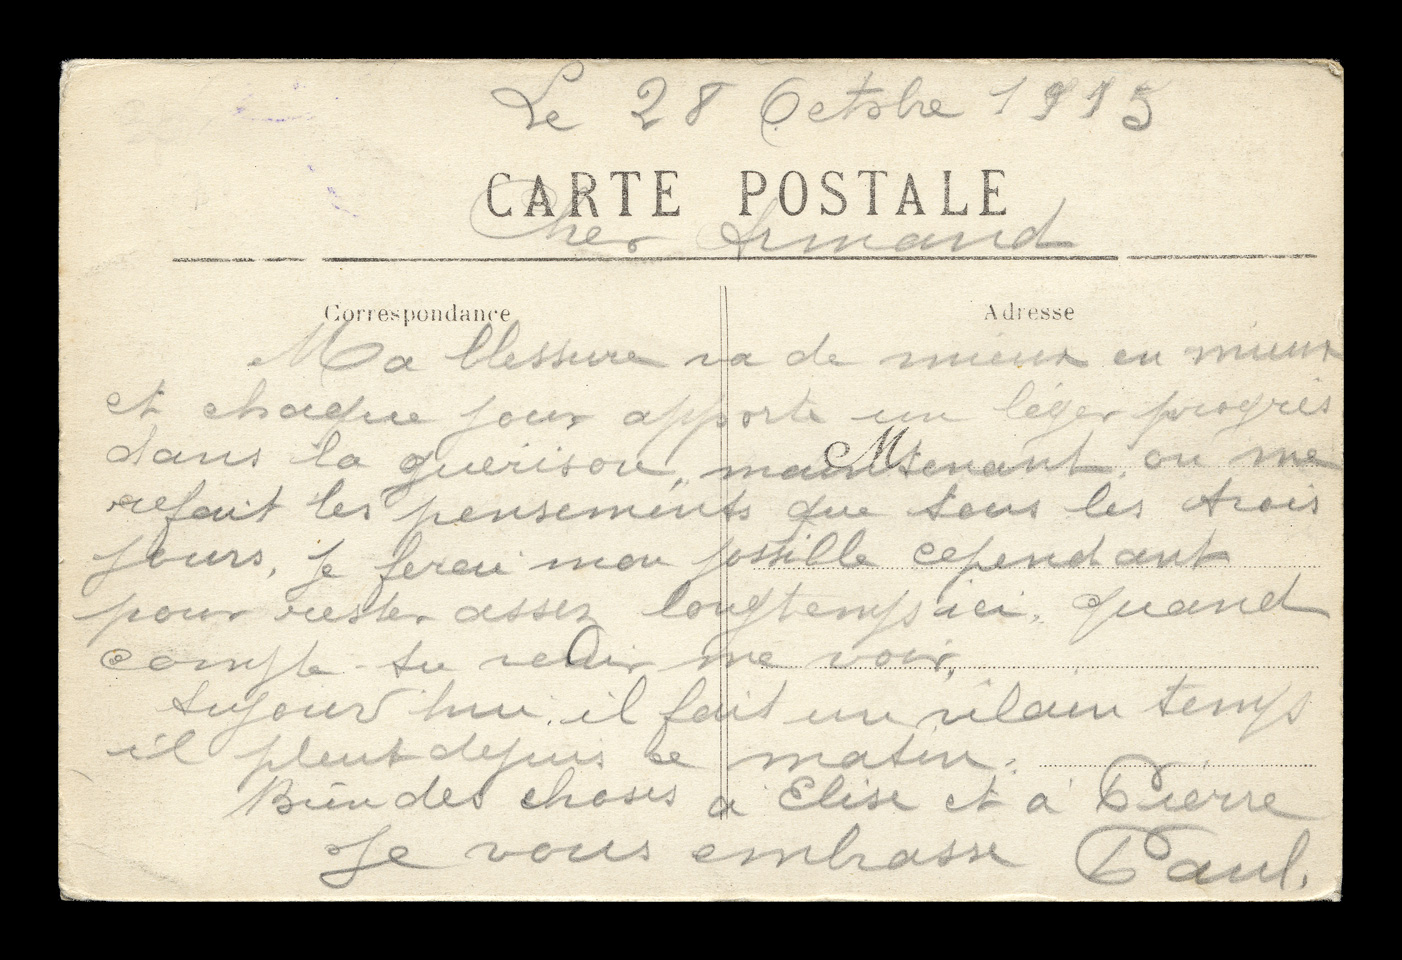 Le 28 Octobre 1915
CARTE POSTALE
Cher Armand
Correspondance
Adresse
Ma blessure va de mieux en mieux
et chaque jour apporte un léger progrès
dans la guerison, maintenant on me
refait les pensements que tous les trois
jours, je ferai mon possible cependant
pour rester assez longtemps ici, quand
compte tu venir me voir,
Aujourd'hui il fait un vilain temps
il pleut depuis ce matin.
Bien des choses à Elise et à Pierre
Je vous embrasse Paul.